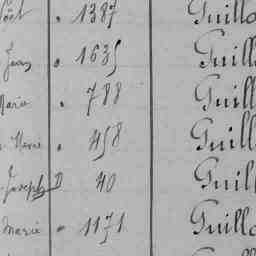 1387 Guillo
Jean 1635 Guillo
Marie 788 Guill
Marie 458 Guill
Joseph D 40 Guill
Marie 1171 Guillo